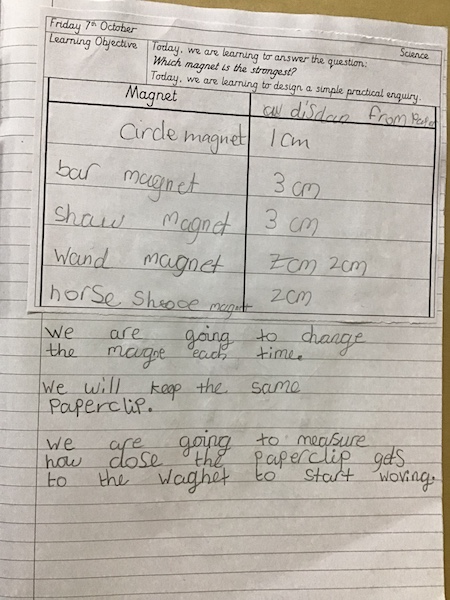 Friday 7th October
Science
Learning Objective
Today, we are learning to answer the question;
Which magnet is the strongest?
Today, we are learning to design a simple practical enquiry.
Magnet
disdan from
Circle magnet 1cm
bar magnet 3cm
Shaw magnet 3cm
Wand magnet 2cm
horse Shooe magnet 2cm
We are going to change
the magne each time.
We will keep the same
Paperclip.
We are going to measure
how close the paperclip gets
to the Waghet to start woving.